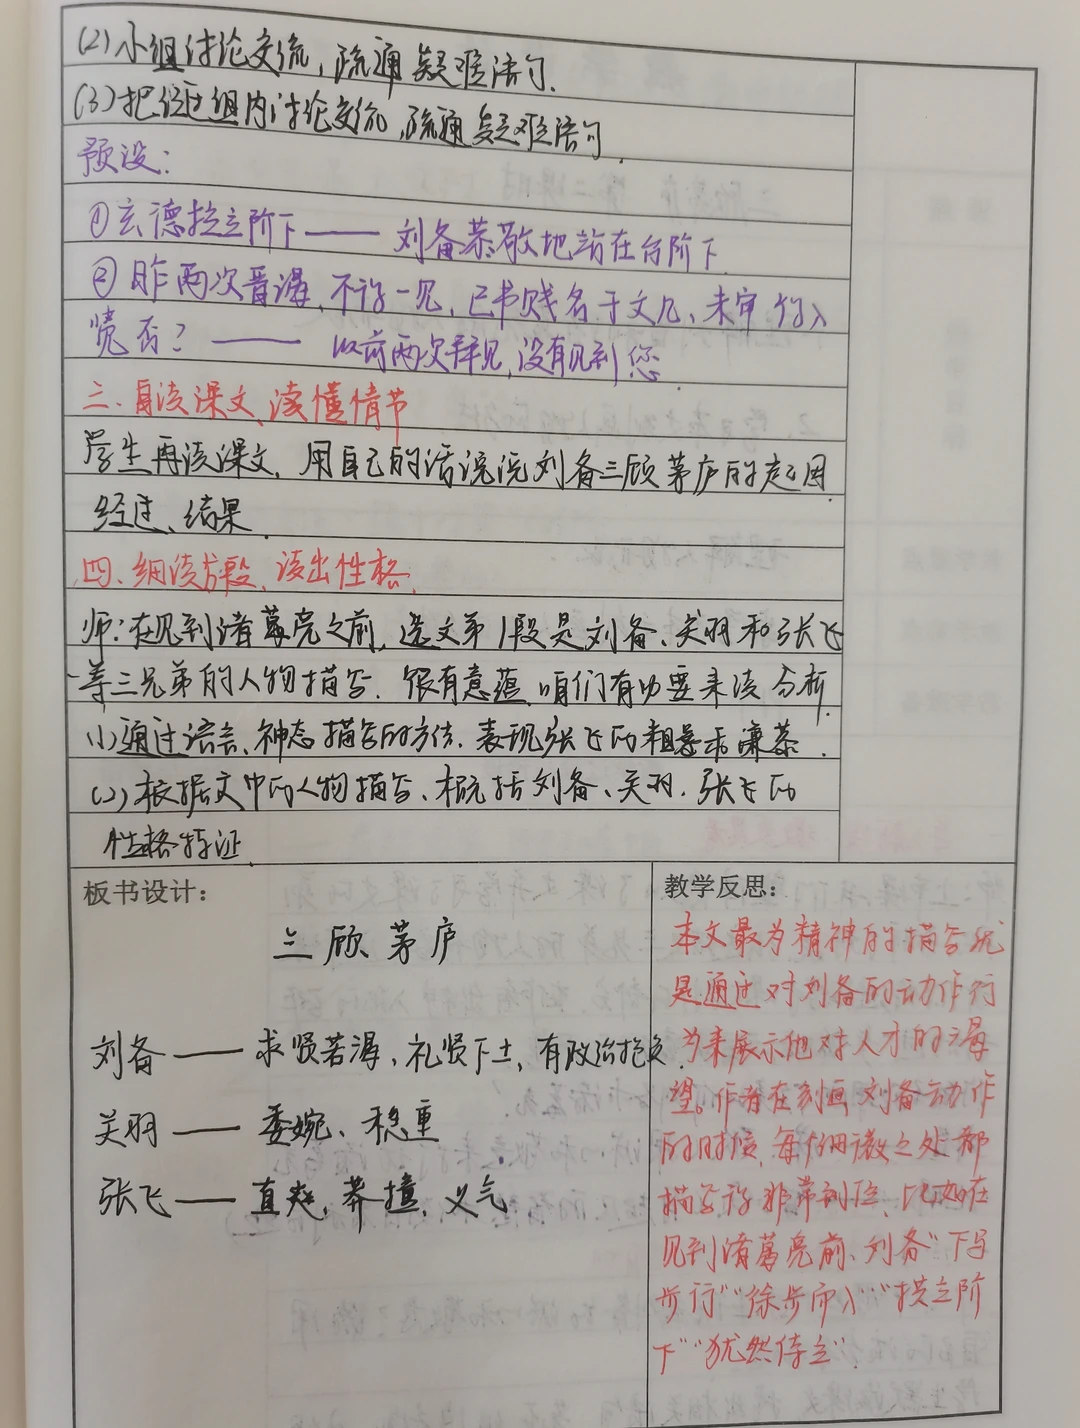 (2)小组讨论交流,疏通疑难语句.
(3)把组内讨论交流,疏通疑难语句.
预设:
①玄德拱立阶下——刘备恭敬地站在台阶下
②昨两次晋谒,不得一见,已书贱名于文几、未审得入
览否?——以前两次拜见,没有见到您.
三、自读课文、读懂情节
学生再读课文、用自己的话说说刘备三顾茅庐的起因
经过、结果
四、细读片段、读出性格
师:在见到诸葛亮之前,选文第1段是刘备、关羽和张飞
等三兄弟的人物描写.很有意蕴,咱们有必要来读分析.
(1)通过语言、神态描写的方法.表现张飞的粗暴
(2)根据文中的人物描写、概括刘备、关羽.张飞的
性格特征.
板书设计:
三顾茅庐
刘备——求贤若渴,礼贤下士,有政治抱负.
关羽——委婉、稳重
张飞——直爽,莽撞,义气
教学反思:
本文最为精神的描写就
是通过对刘备的动作行
为来展示他对人才的渴
望。作者在刻画刘备动作
的时候,每个细微之处都
描写得非常到位、比如在
见到诸葛亮前、刘备"下马
步行""徐步而入""拱立阶
下""犹然侍立"